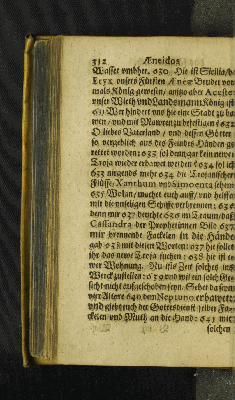 312 Æneidos
Wasser umbher. 630 Hie ist Sicilia/ da
Eryx unsers Fürsten Æneæ Bruder vor
mals König gewesen/ anitzo aber Acestes
unser Wirth und Landsmann König ist
631 Wer hindert uns hie eine Stadt zu ba-
wen/ und mit Mawren zu befestigen 632
O liebes Vaterland/ und dessen Götter
so vergeblich aus des Feindes Händen ge-
rettet worden: 633 sol denn gar kein newes
Troja wieder erbawet werden 634 sol ich
633 nirgends mehr 634 die Trojanischen
Flüsse/ Xanthum und Simoenta sehen
635 Wolan/ machet euch auff/ und helffet
mir die unseligen Schiffe verbrennen: 636
denn mir 637 deuchte 636 im Traum/ daß
Cassandra der Prophetinnen Bild 637
mir brennende Fackeln in die Hände
gab 638 mit diesen Worten: 637 hie sollet
ihr das newe Troja suchen: 638 hie ist ew-
wer Wohnung. Nu ists Zeit solches ins
Werck zustellen: 639 und wil ein solch
nicht auffzuschoben seyn. Sehet da seynd
vier Altare 640 dem Neptuno erbawet:
und giebt euch der Gottesdienst selber Fa-
ckeln und Muth an die Hand: 641 mit
solchen